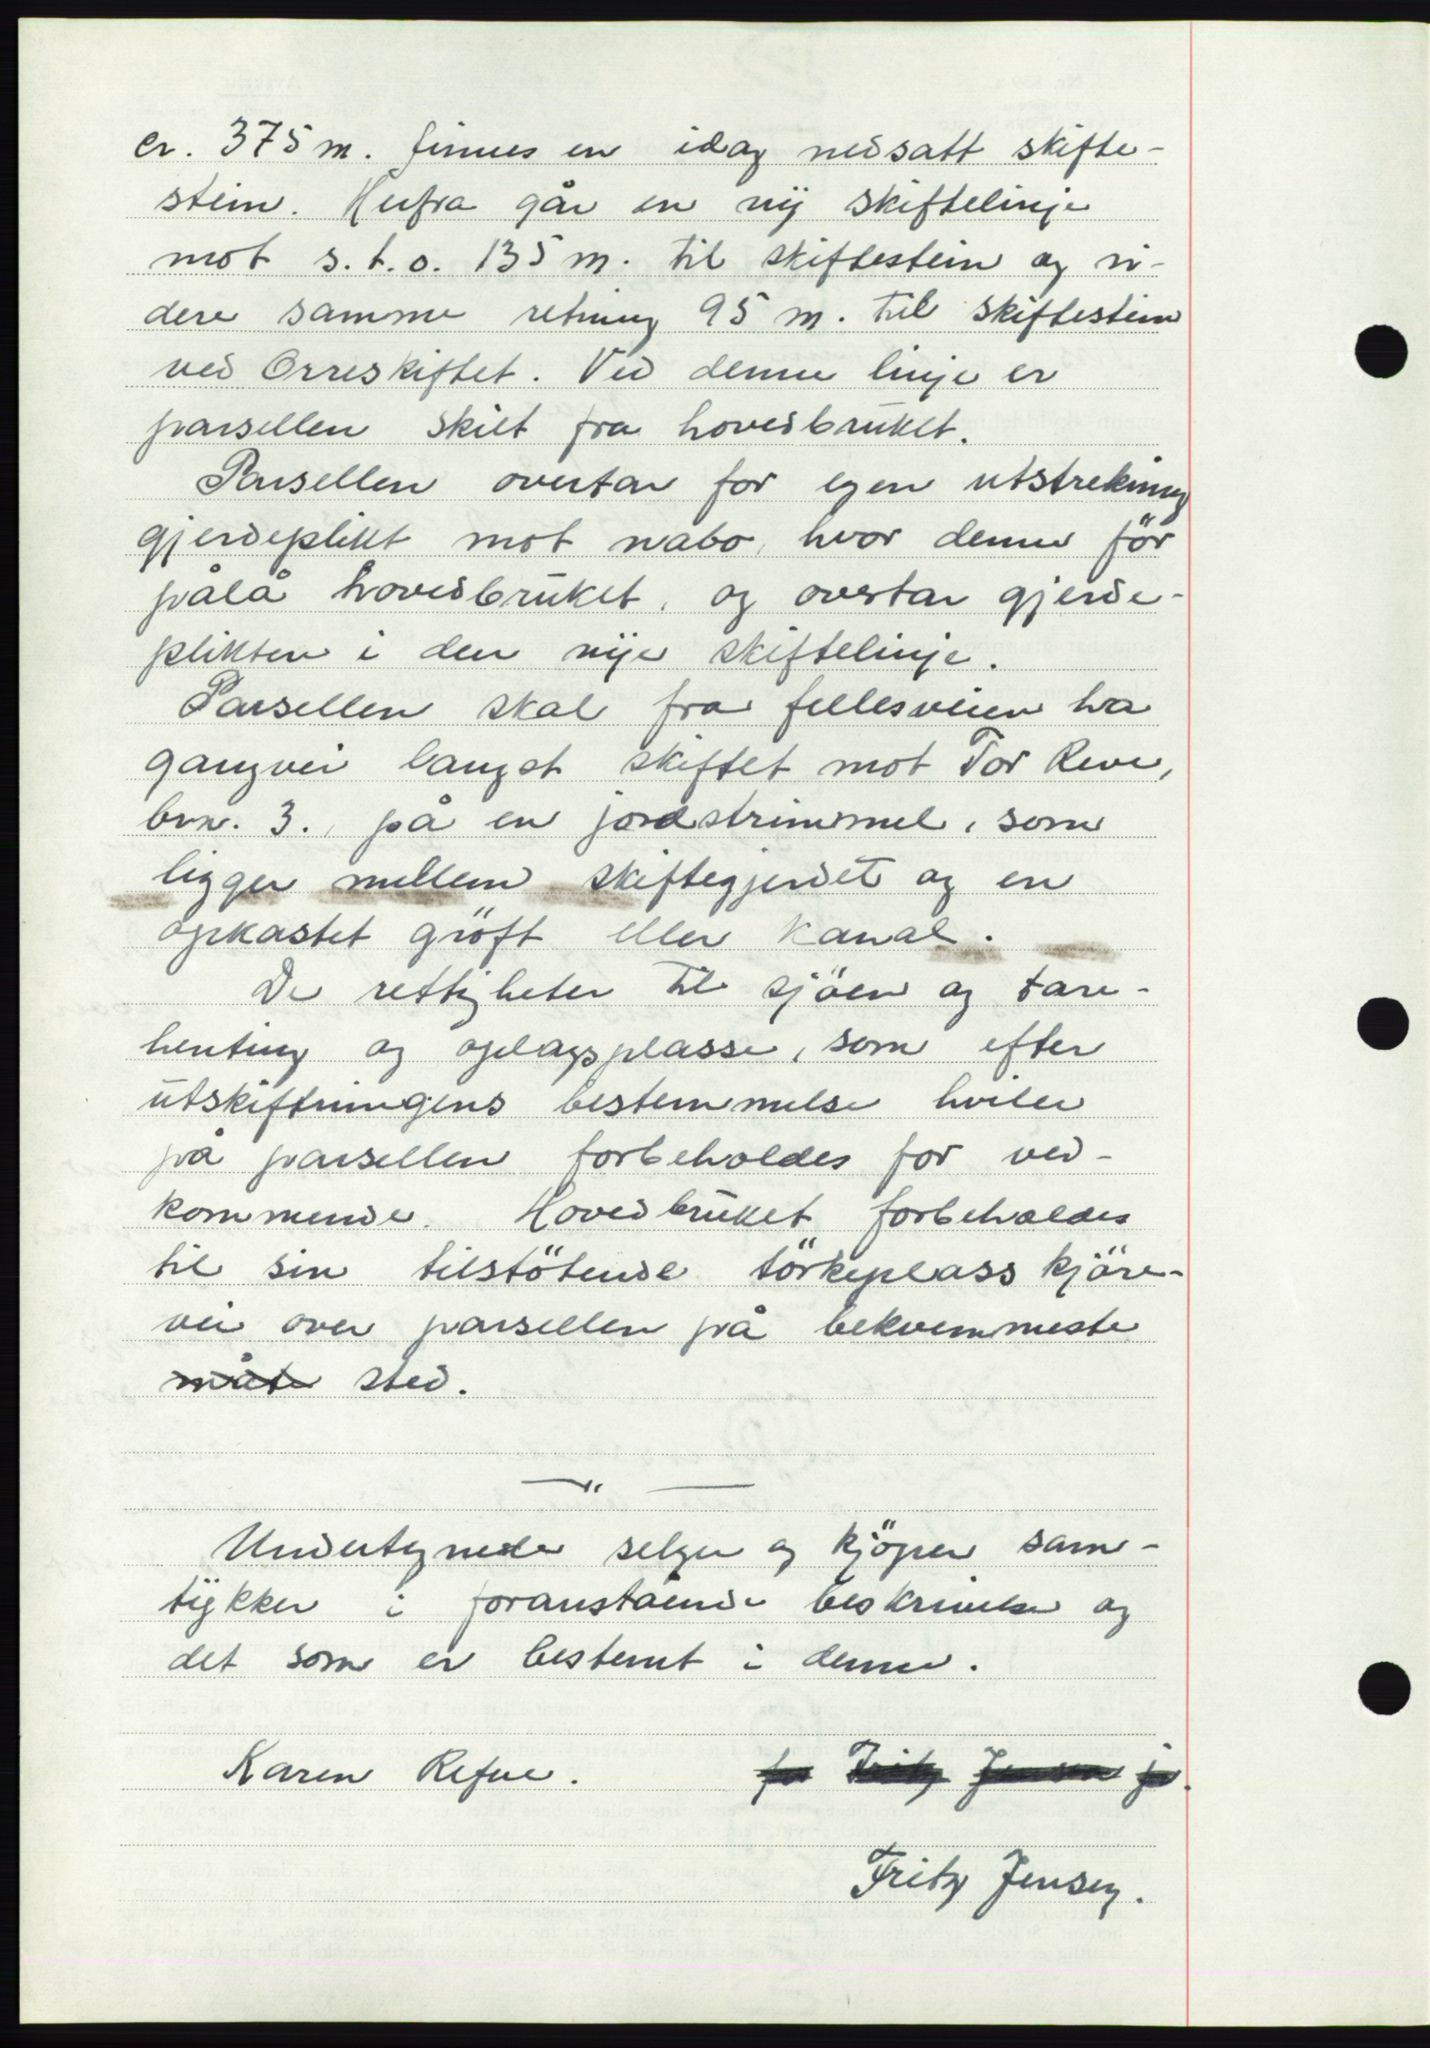 cr. 375 m. finnes en idag nedsatt skifte-
stein. Herfra går en ny skiftelinje
mot s.t.o. 135 m. til skiftestein og vi-
dere samme retning 95 m. til skiftestein
ved Orreskiftet. Ved denne linje er
parsellen skilt fra hovedbruket.
Parsellen overtar for egen utstrekning
gjerdeplikt mot nabo, hvor denne før
pålå hovedbruket, og overtar gjerde-
plikten i den nye skiftelinje.
Parsellen skal fra fellesveien ha
gangvei langst skiftet mot Tor Reve,
brn. 3., på en jordstrimmel, som
ligger mellem skiftegjerdet og en
opkastet grøft eller kanal.
De rettigheter til sjøen og tare-
henting og oplagsplasse, som efter
utskiftningens bestemmelse hviler
på parsellen forbeholdes for ved-
kommende. Hovedbruket forbeholdes
til sin tilstøtende tørkeplass kjøre-
vei over parsellen på bekvemmeste
måte sted.
— " —
Undertegnede selger og kjøper sam-
tykker i foranstående beskrivelse og
det som er bestemt i denne.
Karen Refve. for Fritz Jensen
Fritz Jensen.